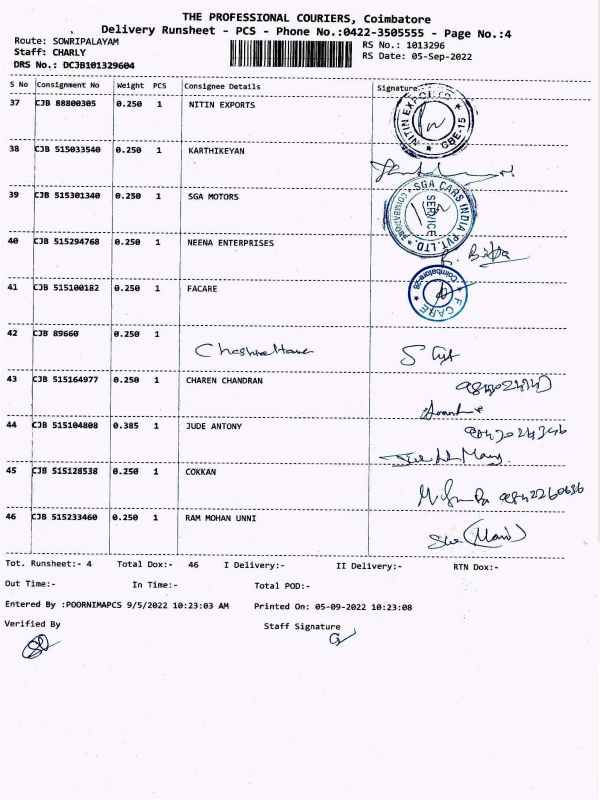 THE PROFESSIONAL COURIERS, Coimbatore
Delivery Runsheet - PCS - Phone No.:0422-3505555 - Page No.:4
Route: SOWRIPALAYAM RS No.: 1013296
Staff: CHARLY RS Date: 05-Sep-2022
DRS No.: DCJB101329604
S No Consignment No Weight PCS Consignee Details Signature
37 CJB 88800305 0.250 1 NITIN EXPORTS
NITIN EXPORTS * CBE-15 *
38 CJB 515033540 0.250 1 KARTHIKEYAN
39 CJB 515301340 0.250 1 SGA MOTORS
SGA CARS INDIA PVT.LTD * COIMBATORE * SERVICE
40 CJB 515294768 0.250 1 NEENA ENTERPRISES
41 CJB 515100182 0.250 1 FACARE
* F CARE * Coimbatore-28
42 CJB 89660 0.250 1
43 CJB 515164977 0.250 1 CHAREN CHANDRAN
44 CJB 515104808 0.385 1 JUDE ANTONY
45 CJB 515128538 0.250 1 COKKAN
9842260636
46 CJB 515233460 0.250 1 RAM MOHAN UNNI
Tot. Runsheet:- 4 Total Dox:- 46 I Delivery:- II Delivery:- RTN Dox:-
Out Time:- In Time:- Total POD:-
Entered By :POORNIMAPCS 9/5/2022 10:23:03 AM Printed On: 05-09-2022 10:23:08
Verified By Staff Signature